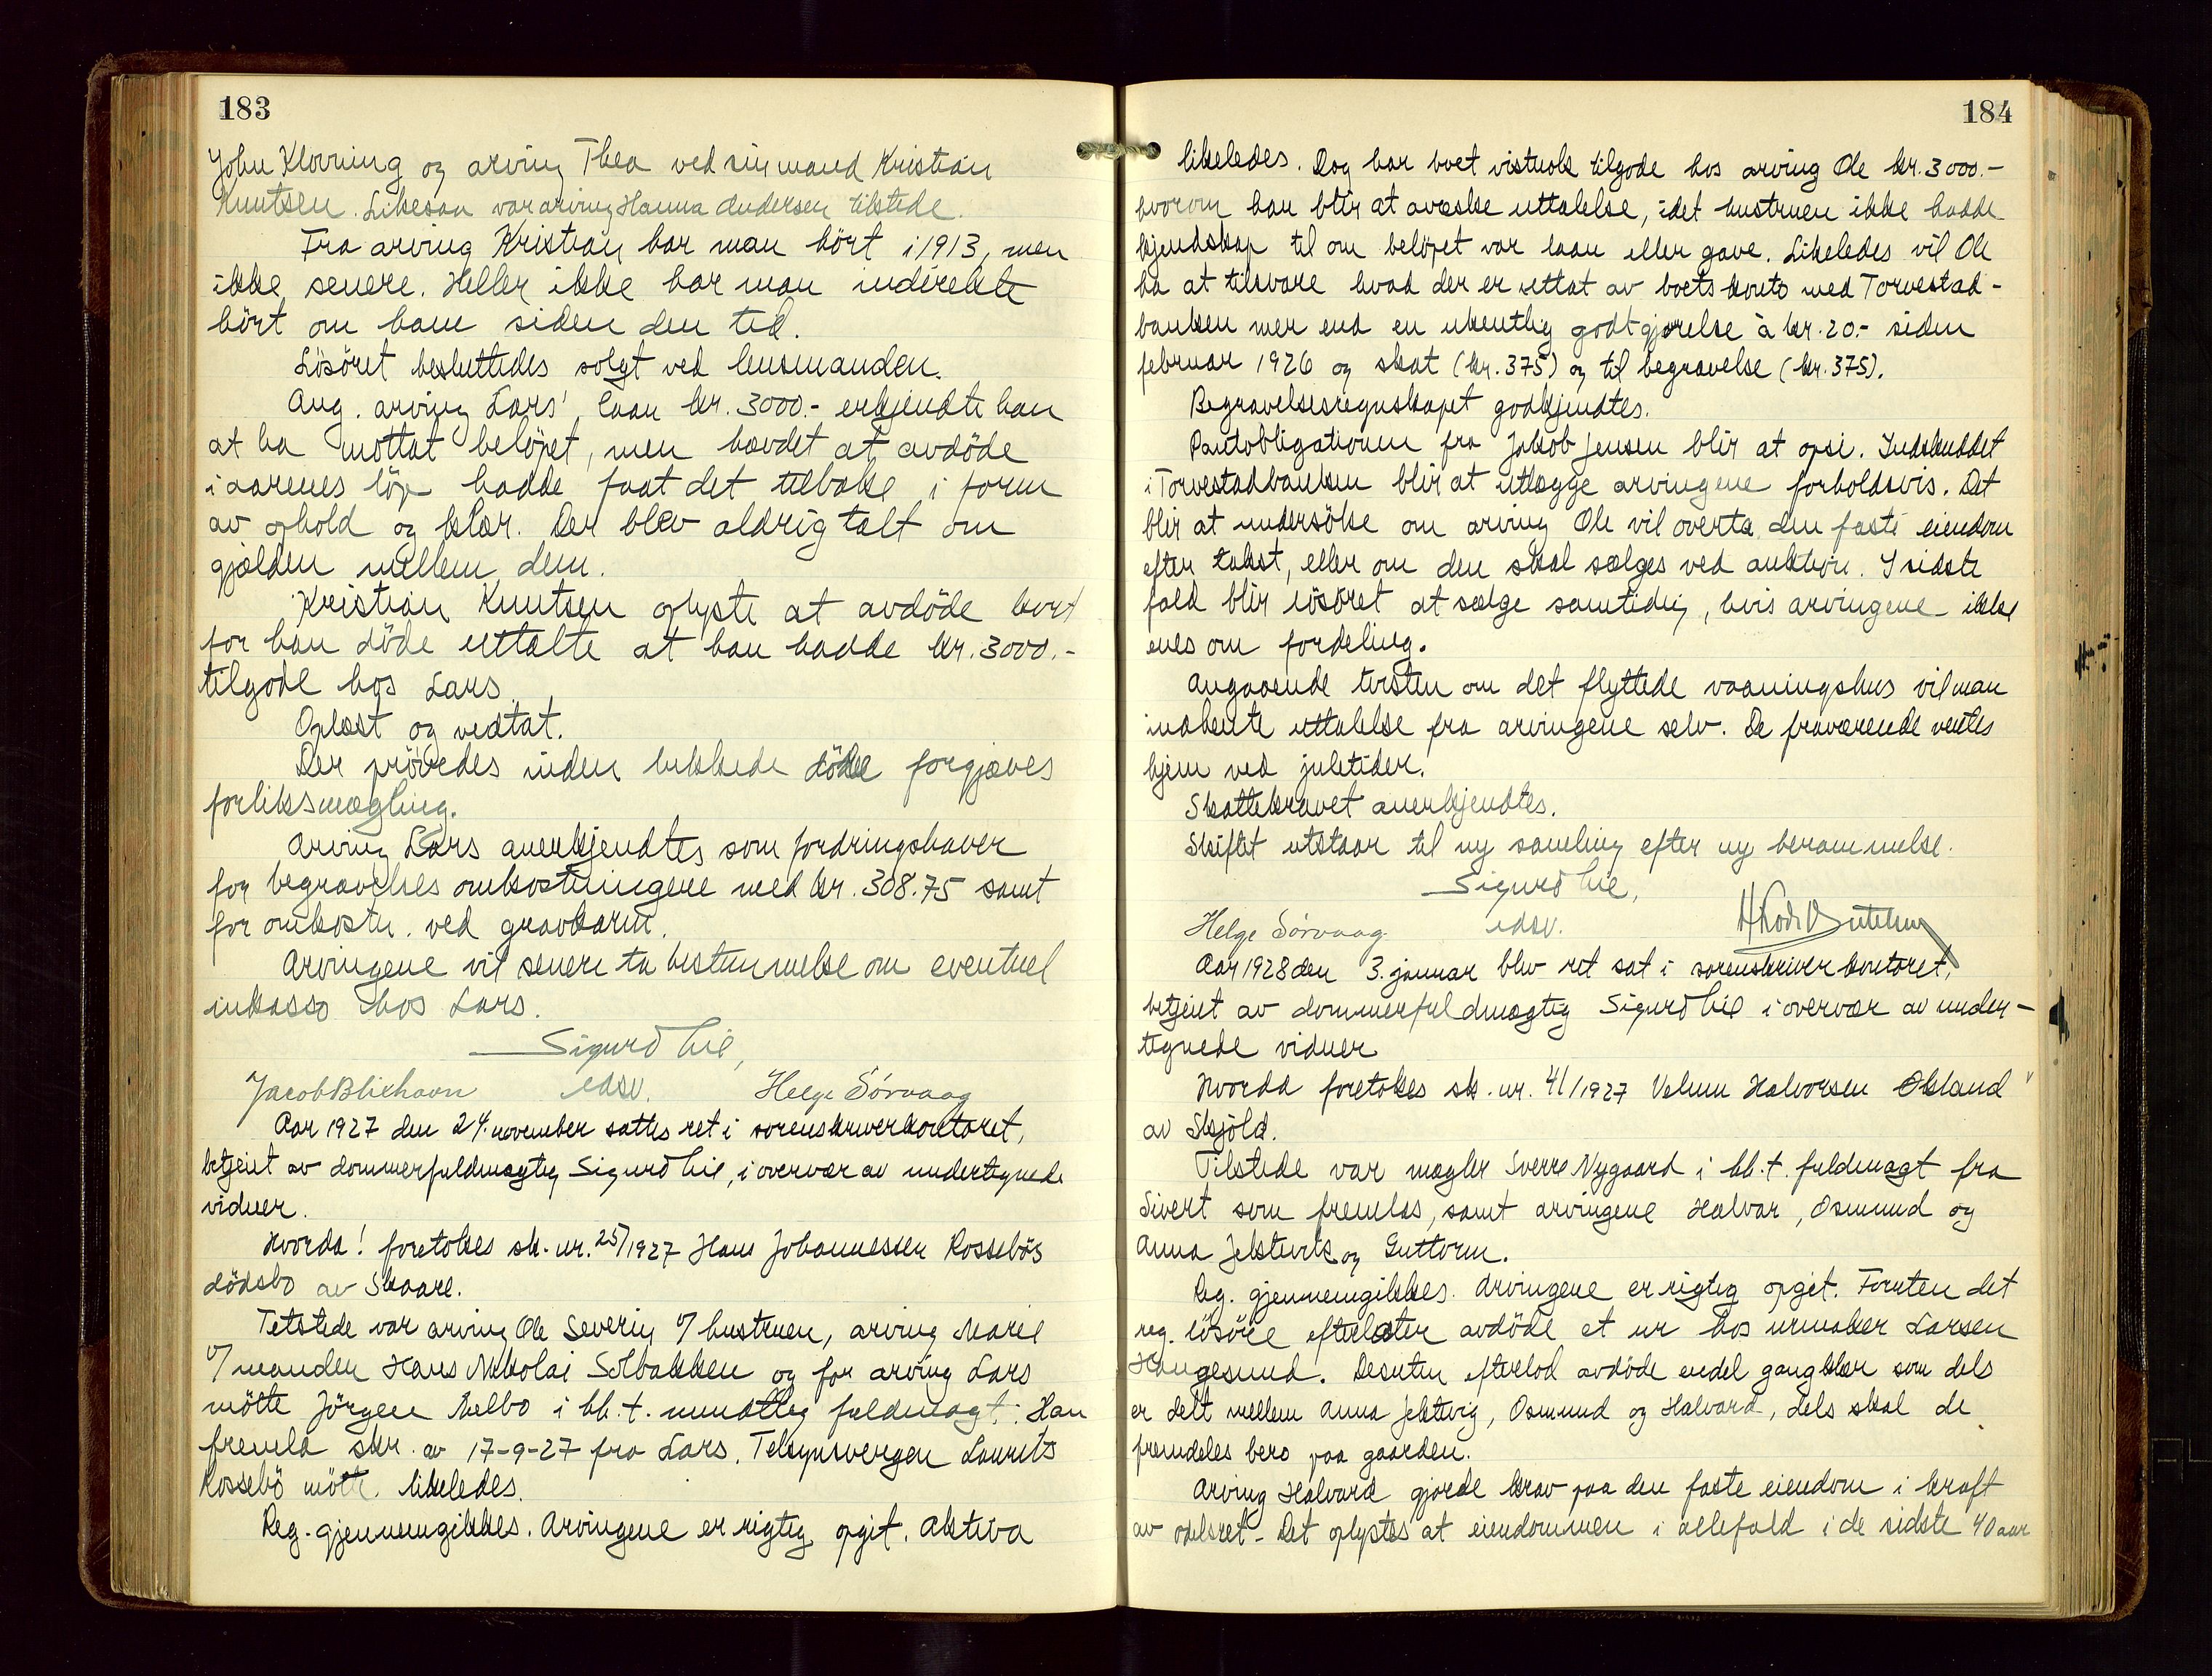 183
John Klovning og arving Thea ved sin mand Kristian
Knutsen. Likesaa var arving Hanna Andersen tilstede.
Fra arving Kristian har man hört i 1913, men
ikke senere. Heller ikke har man indirekte
hört om ham siden den tid.
Lösöret besluttedes solgt ved lensmanden.
Ang. arving Lars' laan kr. 3000.- erkjendte han
at ha mottat belöpet, men hævdet at avdöde
i aarenes löp hadde faat det tilbake i form
av ophold og klær. Der blev aldrig talt om
gjælden mellem dem.
Kristian Knutsen oplyste at avdöde kort
før han döde uttalte at han hadde kr. 3000.-
tilgode hos Lars.
Oplæst og vedtat.
Der prövedes inden lukkede döre forgjæves
forliksmægling.
Arving Lars anerkjendtes som fordringshaver
for begravelses omkostningene med kr. 308.75 samt
for omkostn. ved gravkarm.
Arvingene vil senere ta bestemmelse om eventuel
inkasso hos Lars.
Sigurd Lie,
edsv.
Jacob Blikhavn Helge Sörvaag
Aar 1927 den 24. november sattes ret i sorenskriverkontoret,
betjent av dommerfuldmægtig Sigurd Lie, i overvær av undertegnede
vidner.
Hvorda! foretokes sk. nr. 25/1927 Hans Johannessen Rossebös
dödsbo av Skaare.
Tilstede var arving Ole Severin o/ hustruen, arving Marie
o/ manden Hans Nikolai Solbakken og for arving Lars
mötte Jörgen Melbo i hh. t. mundtlig fuldmagt. Han
fremla skr. av 17-9-27 fra Lars. Tilsynsvergen Laurits
Rossebö mötte likeledes.
Reg. gjennemgikkes. Arvingene er rigtig opgit. Aktiva
184
likeledes. Dog har boet vistnok tilgode hos arving Ole kr. 3000.-
hvorom han blir at avæske uttalelse, idet hustruen ikke hadde
kjendskap til om belöpet var laan eller gave. Likeledes vil Ole
ha at tilsvare hvad der er uttat av boets konto med Torvestad-
banken mer end en ukentlig godtgjørelse à kr. 20.- siden
februar 1926 og skat (kr. 375) og til begravelse (kr. 375).
Begravelsesregnskapet godkjendtes.
Pantobligationen fra Jakob Jensen blir at opsi. Indskuddet
i Torvestadbanken blir at utlægge arvingene forholdsvis. Det
blir at undersöke om arving Ole vil overta den faste eiendom
efter takst, eller om den skal sælges ved auktion. I sidste
fald blir lösöret at sælge samtidig, hvis arvingene ikke
enes om fordeling.
Angaaende tvisten om det flyttede vaaningshus vil man
indhente uttalelse fra arvingene selv. De fraværende ventes
hjem ved juletider.
Skattekravet anerkjendtes.
Skiftet utstaar til ny samling efter ny berammelse.
Sigurd Lie,
edsv.
Helge Sörvaag
Aar 1928 den 3. januar blev ret sat i sorenskriverkontoret,
betjent av dommerfuldmægtig Sigurd Lie i overvær av under-
tegnede vidner
Hvorda foretokes sk. nr. 41/1927 Velum Halvorsen Økland
av Skjöld.
Tilstede var mægler Sverre Nygaard i hh. t. fuldmagt fra
Sivert som fremlas, samt arvingene Halvar, Osmund og
Anna Jelstvik og Guttorm.
Reg. gjennemgikkes. Arvingene er rigtig opgit. Foruten det
reg. lösöre efterlater avdöde et ur hos urmaker Larsen
Haugesund. Desuten efterlod avdöde endel gangklær som dels
er delt mellem Anna Jelstvig, Osmund og Halvard, dels skal de
fremdeles bero paa gaarden.
Arving Halvard gjorde krav paa den faste eiendom i kraft
av odelsret. Det oplystes at eiendommen i allefald i de sidste 40 aar